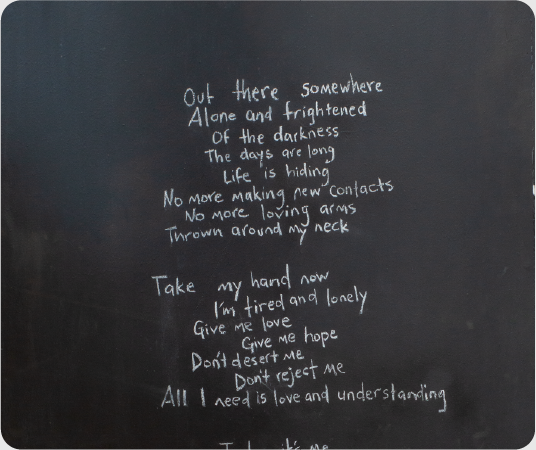 Out there somewhere
Alone and frightened
Of the darkness
The days are long
Life is hiding
No more making new contacts
No more loving arms
Thrown around my neck
Take my hand now
I'm tired and lonely
Give me love
Give me hope
Don't desert me
Don't reject me
All I need is love and understanding